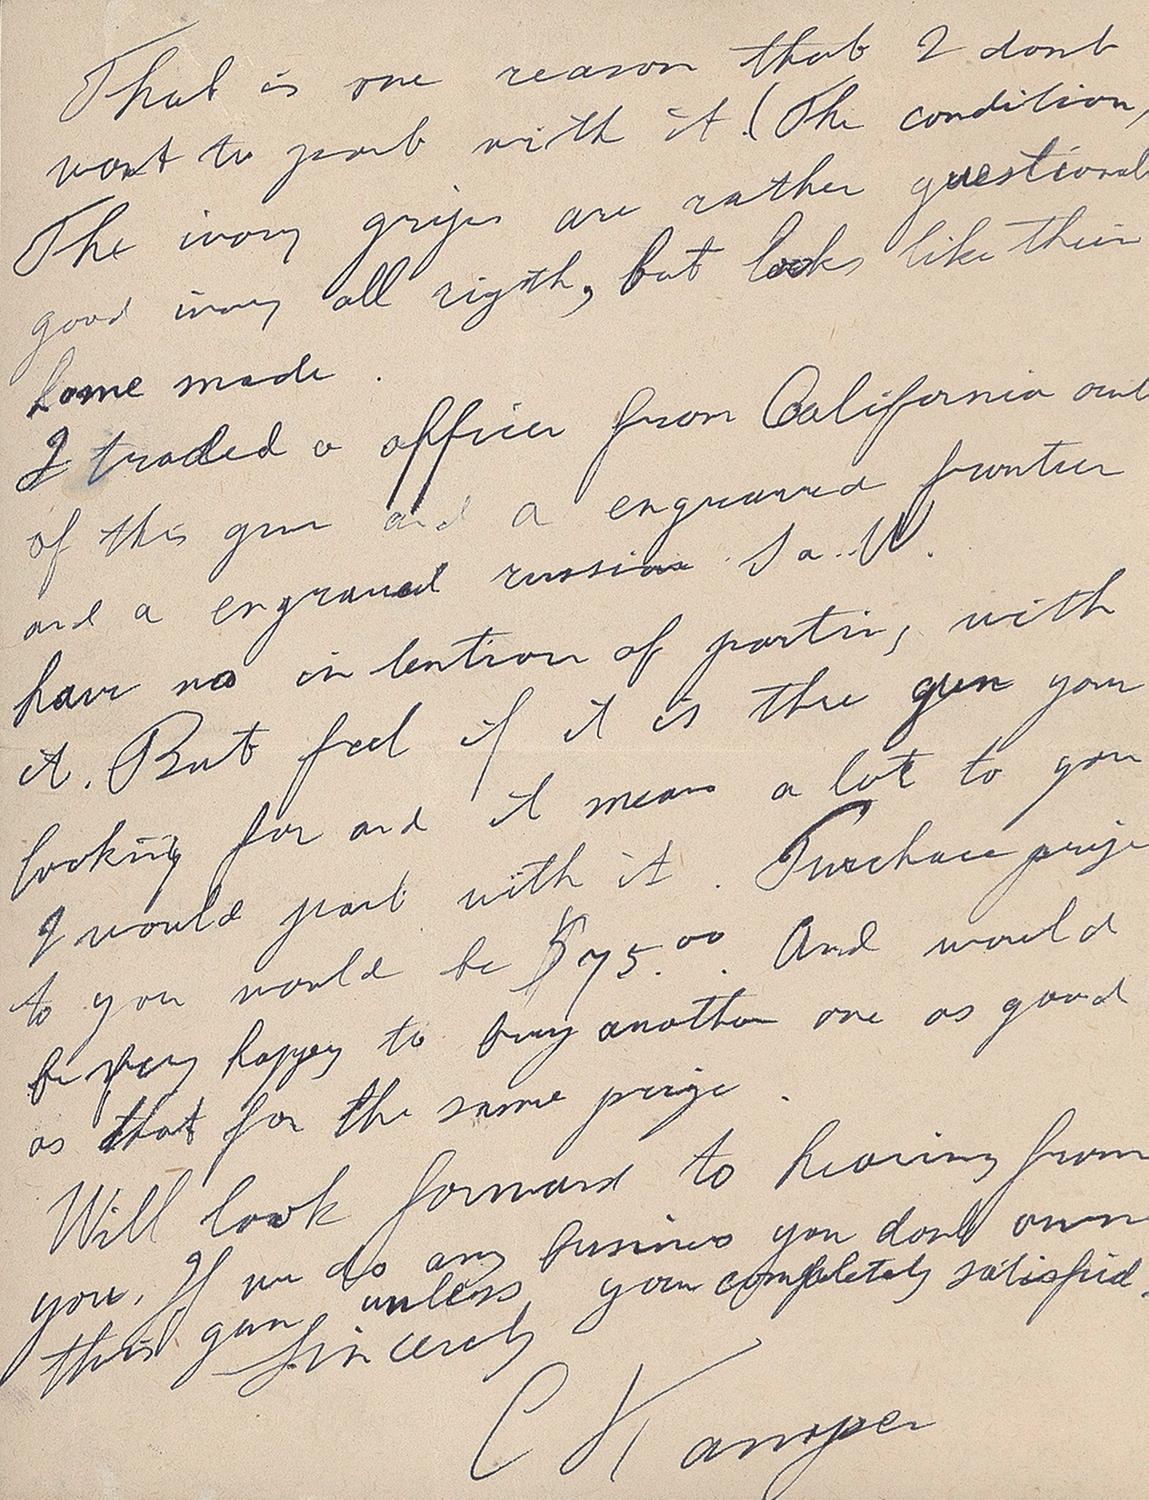 That is one reason that I dont
want to part with it. (The condition,
The ivory gripes are rather questional
good ivory all rigth, but looks like their
home made.
I traded a officer from California out
of this gun and a engraved frontier
and a engraved russian S a. W.
have no intention of parting with
it. But feel if it is thee gun your
looking for and it means a lot to you
I would part with it. Purchace prize
to you would be $75.00. And would
be very happy to buy another one as good
as that for the same prize.
Will look forward to hearing from
you. If we do any business you dont own
this gun unless your completely satisfied.
Sincerely
C Kamper